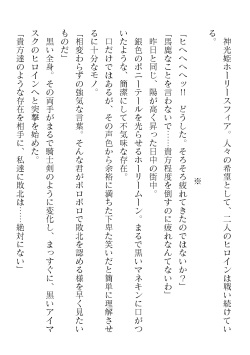 神光姫ホーリースフィア。人々の希望として、二人のヒロインは戦い続けてい
る。
※
「ヒヘヘヘヘッ！　どうした、そろそろ疲れてきたのではないか？」
「馬鹿なことを言わないで……貴方程度を倒すのに疲れなんてないわ」
昨日と同じ、陽が高く昇った日中の街中。
銀色のポニーテールを光らせるホーリームーン。まるで黒いマネキンに口がつ
いたような、簡潔にして不気味な存在。
口だけではあるが、その声色から余裕に満ちた下卑た笑いだと簡単に理解させ
るに十分なモノ。
「相変わらずの強気な言葉。そんな君がボロボロで敗北を認める様を早く見たい
ものだ」
黒い全身。その両手がまるで騎士剣のように変化し、まっすぐに、黒いアイマ
スクのヒロインへと突撃を始めた。
「貴方達のような存在を相手に、私達に敗北は……絶対にない」